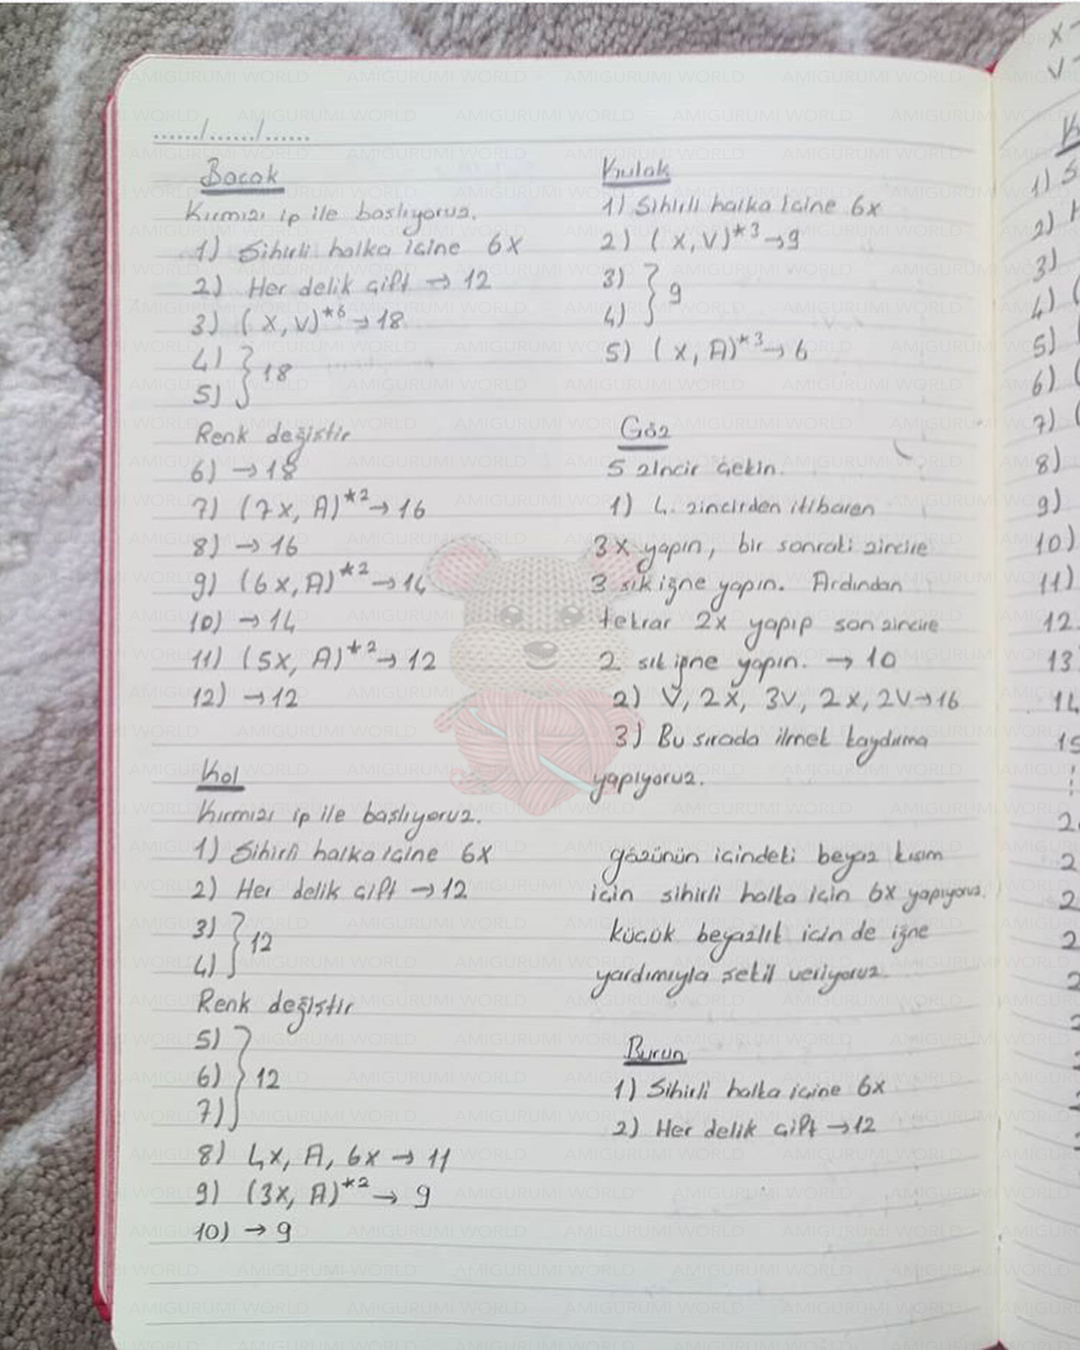 ....../....../......
Bacak
Kırmızı ip ile başlıyoruz.
1) Sihirli halka içine 6x
2) Her delik çift → 12
3) (x, v)*6 → 18
4)
5) } 18
Renk değiştir
6) → 18
7) (7x, A)*2 → 16
8) → 16
9) (6x, A)*2 → 14
10) → 14
11) (5x, A)*2 → 12
12) → 12
Kol
Kırmızı ip ile başlıyoruz.
1) Sihirli halka içine 6x
2) Her delik çift → 12
3)
4) } 12
Renk değiştir
5)
6) } 12
7)
8) 4x, A, 6x → 11
9) (3x, A)*2 → 9
10) → 9
Kulak
1) Sihirli halka içine 6x
2) (x, v)*3 → 9
3)
4) } 9
5) (x, A)*3 → 6
Göz
5 zincir çekin.
1) 4. zincirden itibaren
3x yapın, bir sonraki zincire
3 sık iğne yapın. Ardından
tekrar 2x yapıp son zincire
2 sık iğne yapın. → 10
2) V, 2x, 3v, 2x, 2v → 16
3) Bu sırada ilmek kaydırma
yapıyoruz.
gözünün içindeki beyaz kısım
için sihirli halka için 6x yapıyoruz.
küçük beyazlık için de iğne
yardımıyla şekil veriyoruz.
Burun
1) Sihirli halka içine 6x
2) Her delik çift → 12
x
v
K
1) S
2)
3)
4) (
5)
6) (
7) (
8)
9)
10)
11)
12.
13
14
AMIGURUMI WORLD